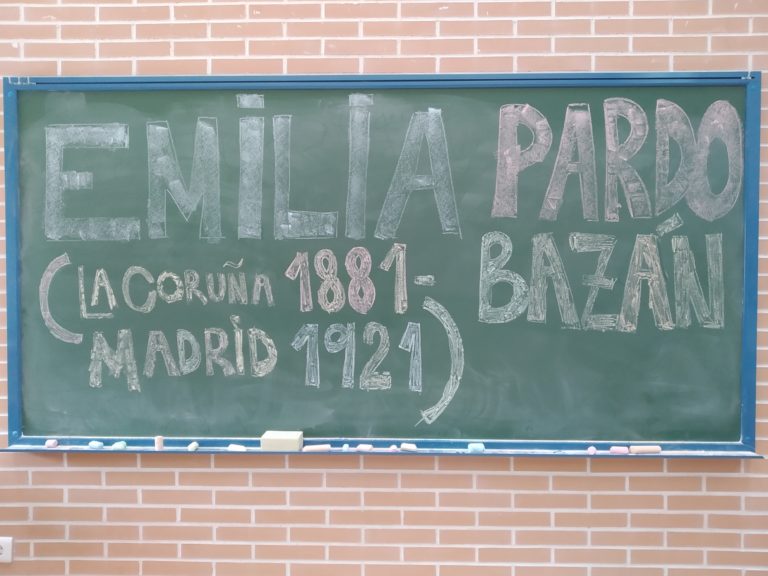 EMILIA PARDO
BAZÁN
(LA CORUÑA 1881-
MADRID 1921)